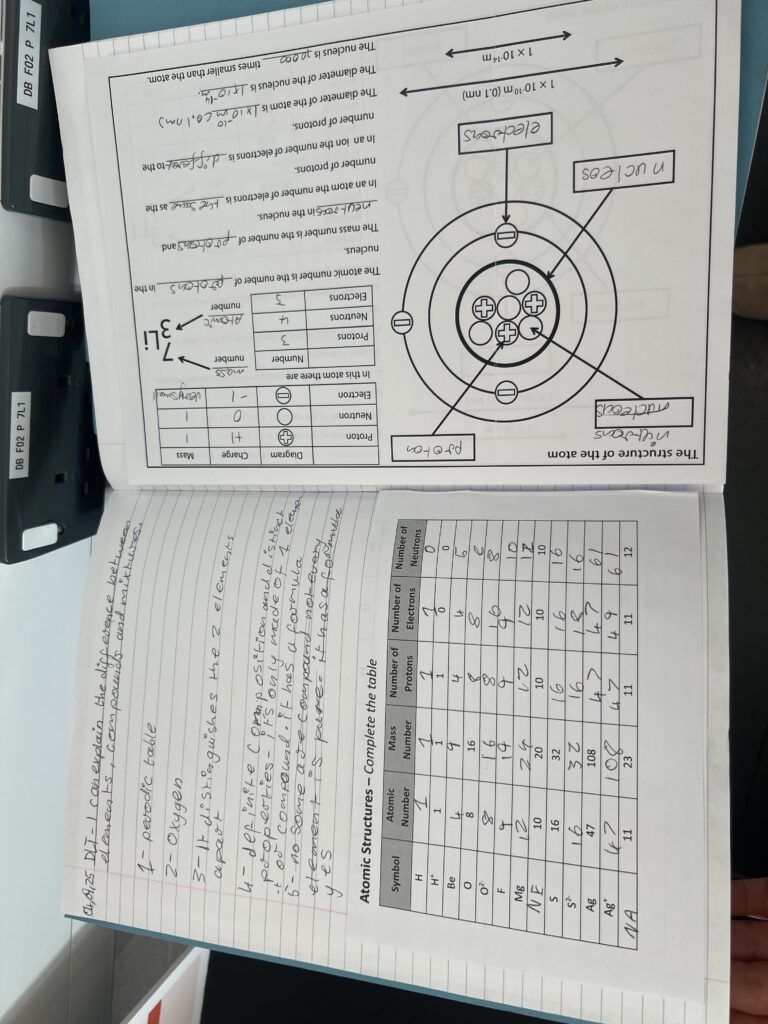 DLT- I can explain the difference between
elements, compounds and mixtures.
1- perodic table
2- Oxygen
3- It distinguishes the 2 elements
apart
4- definite composition and distinct
properties- its only made of 1 eleme
or compound. it has a formula
5- no some are compound not every
element is pure. it has a formula
yes
Atomic Structures – Complete the table
Symbol Atomic Number Mass Number Number of Protons Number of Electrons Number of Neutrons
H 1 1 1 1 0
H⁺ 1 1 1 0 0
Be 4 9 4 4 5
O 8 16 8 8 8
O²⁻ 8 16 8 10 8
F 9 19 9 9 10
Mg 12 24 12 12 12
NE 10 20 10 10 10
S 16 32 16 16 16
S²⁻ 16 32 16 18 16
Ag 47 108 47 47 61
Ag⁺ 47 108 47 49 61
NA 11 23 11 11 12
The structure of the atom
neutrons
proton
nucleos
electrons
1 x 10⁻¹⁰ m (0.1 nm)
1 x 10⁻¹⁴ m
Diagram Charge Mass
Proton + +1 1
Neutron 0
Electron − -1 very small
In this atom there are
Number
Protons 3
Neutrons 4
Electrons 3
mass
number
7
3 Li
Atomic
number
The atomic number is the number of protons in the
nucleus.
The mass number is the number of protons and
neutrons in the nucleus.
In an atom the number of electrons is the same as the
number of protons.
In an ion the number of electrons is different to the
number of protons.
The diameter of the atom is 1x10⁻¹⁰m (0.1 nm)
The diameter of the nucleus is 1x10⁻¹⁴
The nucleus is times smaller than the atom.
DB F02 P 7L1
DB F02 P 7L1